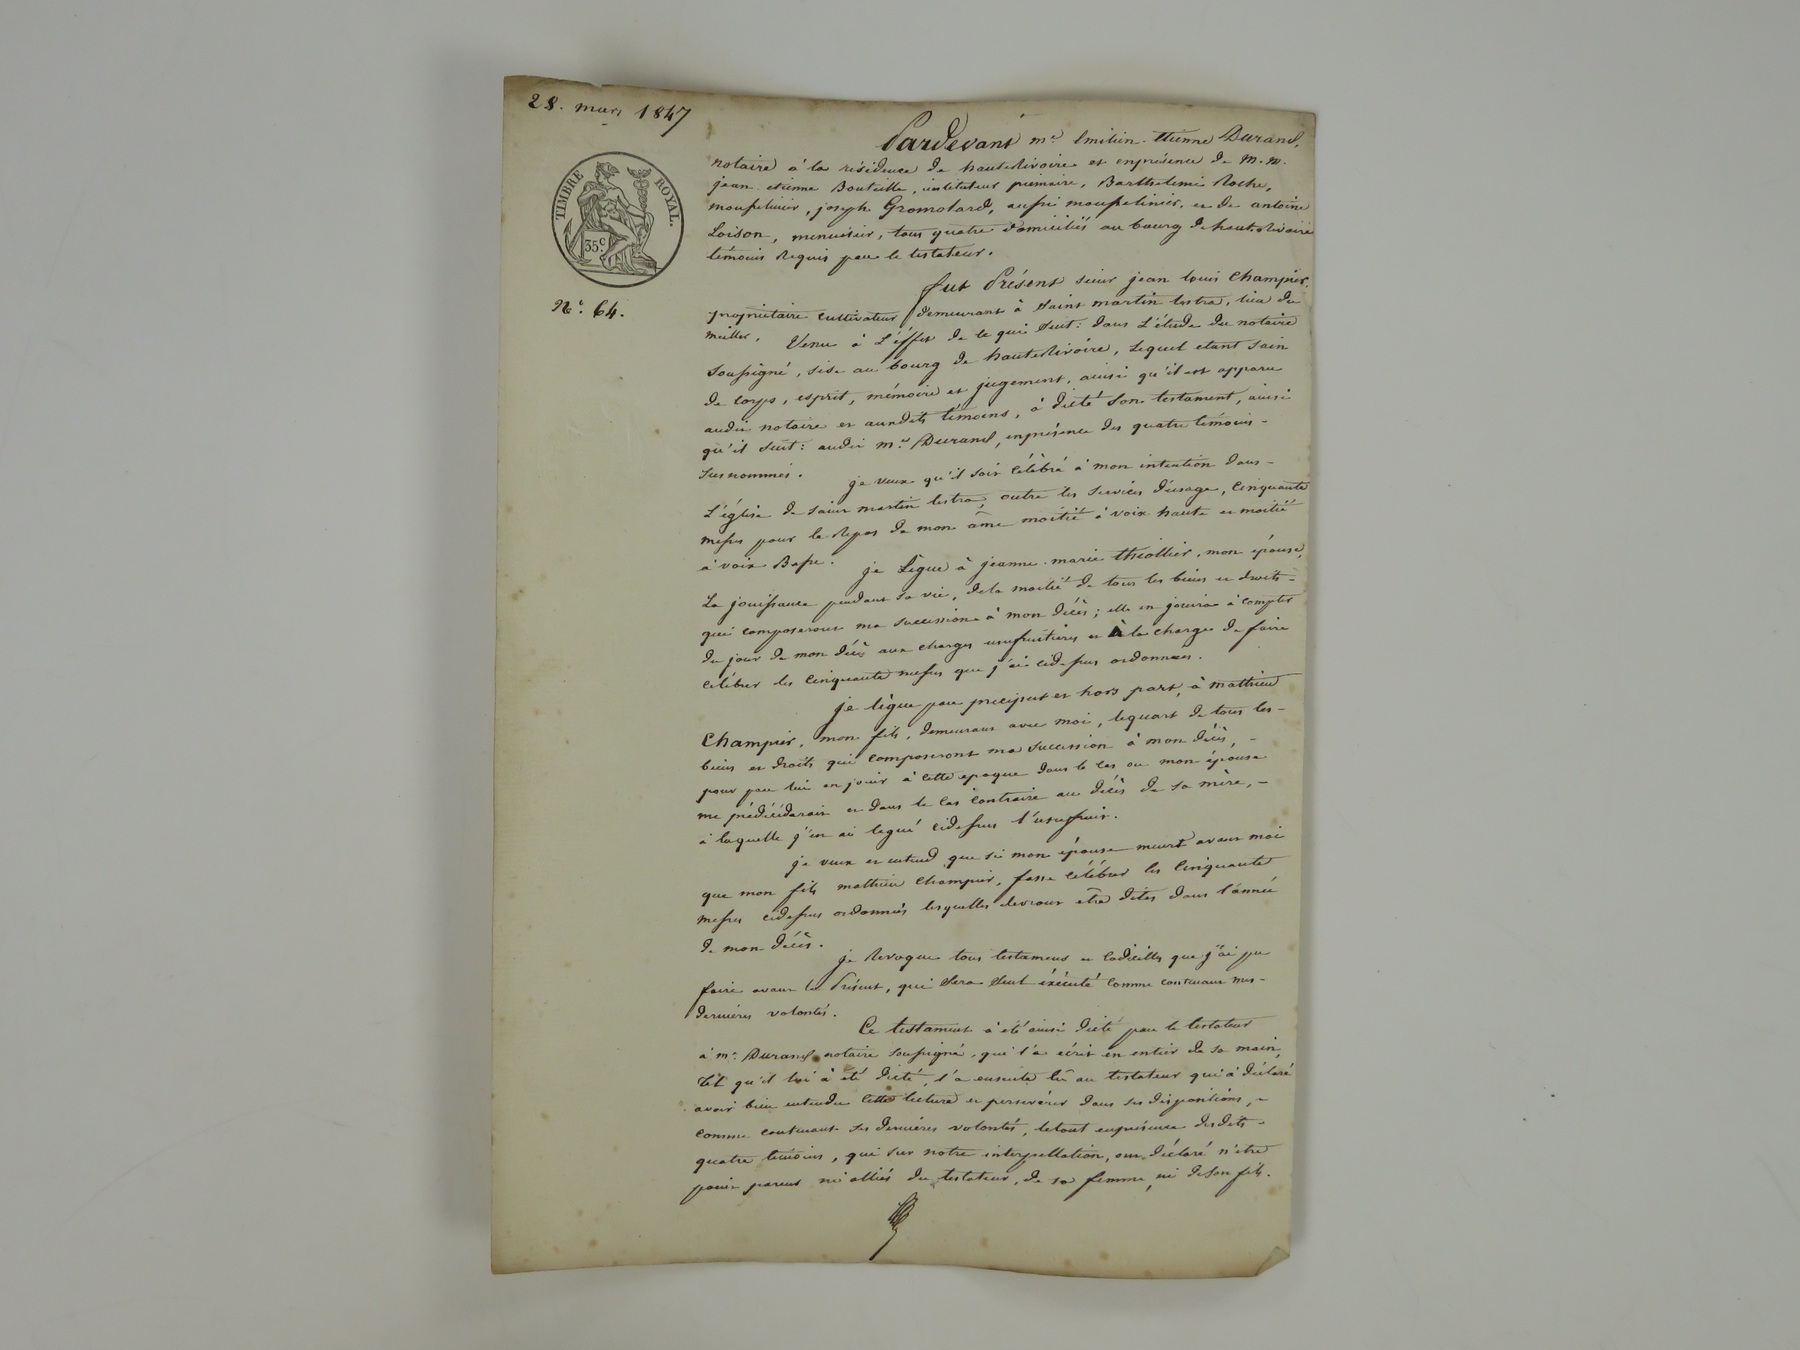 28. mars 1847
TIMBRE ROYAL.
35c.
No. 64.
Pardevant me Emilien-Etienne Durand,
notaire à la résidence de hauterivoire et enprésence de M.M.
jean etienne Bouteille, instituteur primaire, Barthelemi Roche,
mousselinier, joseph Gromolard, aussi mousselinier, et de antoine
Loison, menuisier, tous quatre domiciliés au bourg de hauterivoire
témoins Requis par le testateur.
fut Présent sieur jean louis Champier,
proprietaire cultivateur demeurant à Saint martin lestra, lieu du
Venu à L'éffet de ce qui Suit: dans L'étude du notaire
Soussigné, sise au bourg de hauterivoire, Lequel etant Sain
de corps, esprit, mémoire et jugement, ainsi qu'il est apparu
audit notaire et auxdits témoins, à dicté Son testament, ainsi
qu'il Suit: audit me Durand, enprésence des quatre témoins-
Susnommés.
je veux qu'il Soit Célébré à mon intention dans-
L'église de Saint martin lestra, outre les Services d'usage, Cinquante
messes pour le Repos de mon âme moitié à voix haute et moitié
à voix Basse.
je Lègue à jeanne-marie thiollier, mon épouse,
La jouissance pendant sa vie, dela moitié de tous les biens et droits-
qui composeront ma Succession à mon décès; elle en jouira à compter
du jour de mon décès aux charges usufruitières et à la charge de faire
célébrer les Cinquante messes que j'ai cidessus ordonnées.
je lègue par preciput et hors part, à mathieu
Champier, mon fils, demeurant avec moi, lequart de tous les-
biens et droits qui composeront ma Succession à mon décès, -
pour par lui en jouir à cette epoque dans le cas ou mon épouse
me prédécéderait et dans le cas contraire au décès de sa mère, -
à laquelle j'en ai legué cidessus l'usufruit.
je veux et entend que si mon épouse meurt avant moi
que mon fils mathieu Champier, fasse célébrer les Cinquante
messes cidessus ordonnées lesquelles devront etre dites dans l'année
de mon décès.
je Revoque tous testamens et Codicilles que j'ai pu
faire avant le Présent, qui Sera Seul éxécuté Comme contenant mes-
dernières volontés.
Ce testament à été ainsi dicté par le testateur
à me Durand notaire soussigné, qui l'a écrit en entier de sa main,
tel qu'il lui à été dicté, l'a ensuite lû au testateur qui à déclaré
avoir bien entendu cette lecture et persévérer dans ses dispositions, -
comme contenant ses dernières volontés, letout enprésence desdits-
quatre témoins, qui sur notre interpellation, ont déclaré n'etre
point parens ni alliés du testateur, de sa femme, ni deson fils.